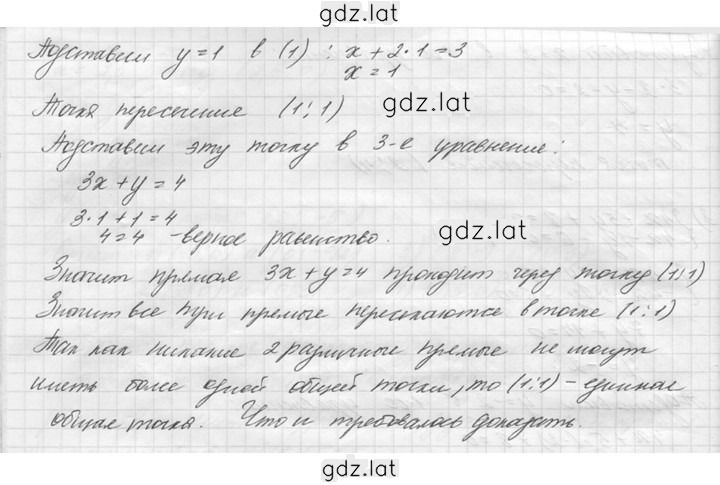 gdz.lat
Подставим y=1 в (1) : x+2·1=3
x=1
gdz.lat
Точка пересечение (1;1)
Подставим эту точку в 3-е уравнение:
3x+y=4
3·1+1=4
gdz.lat
4=4 -верное равенство.
Значит прямая 3x+y=4 проходит через точку (1;1)
Значит все три прямые пересекаются в точке (1;1)
Так как никакие 2 различные прямые не могут
иметь более одной общей точки, то (1;1) - единая
общая точка. Что и требовалось доказать.
gdz.lat